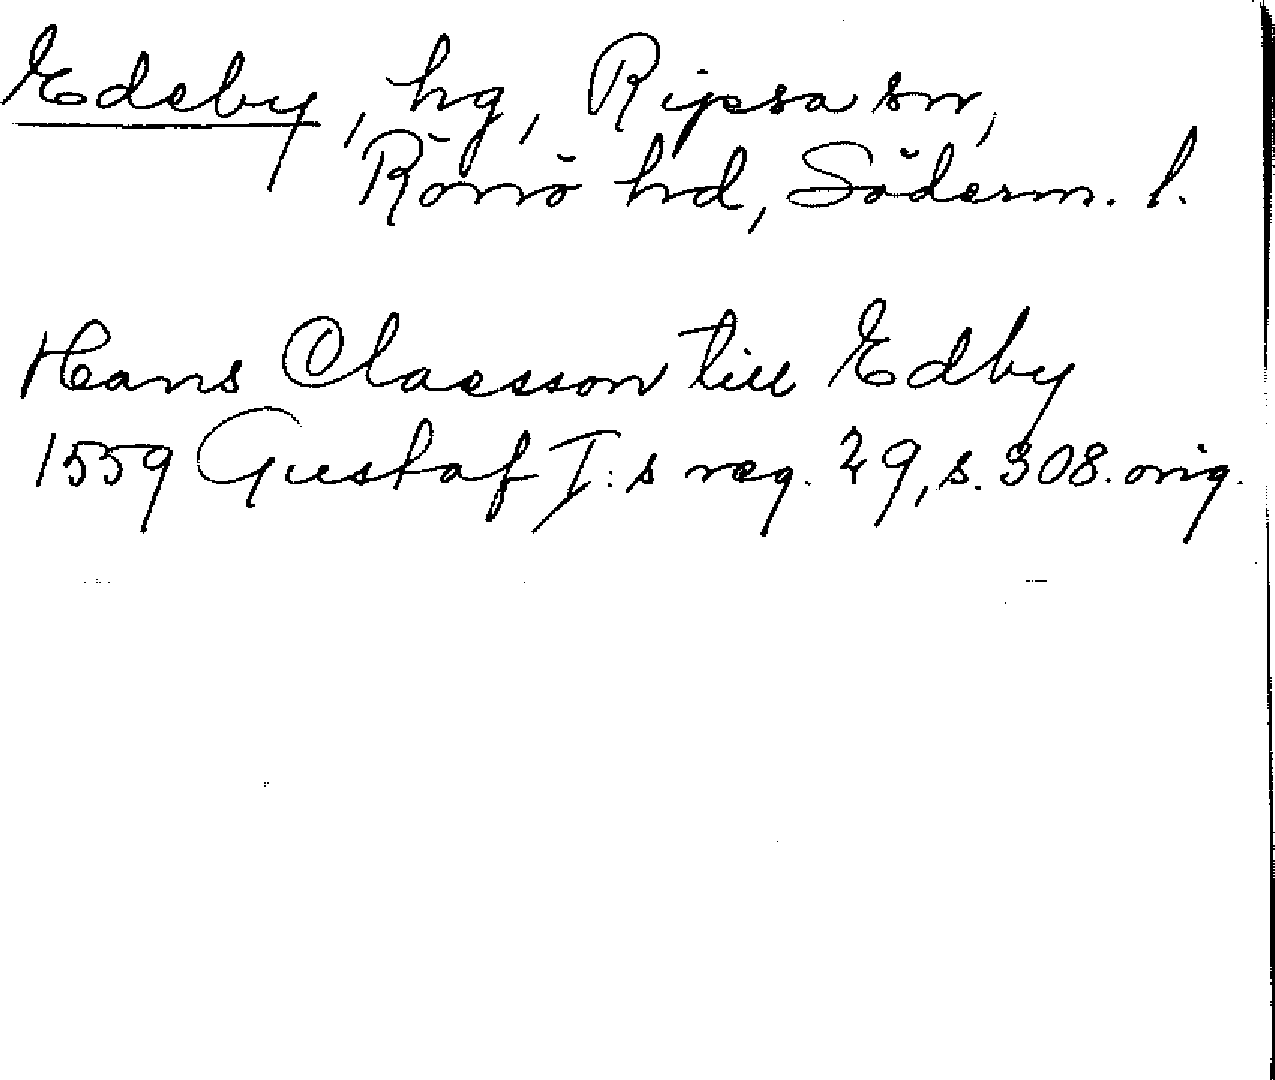 Edeby, hg, Ripsa sn,
Rönö hd, Söderm. l.
Hans Claesson till Edby
1559 Gustaf I:s reg. 29, s. 308. orig.